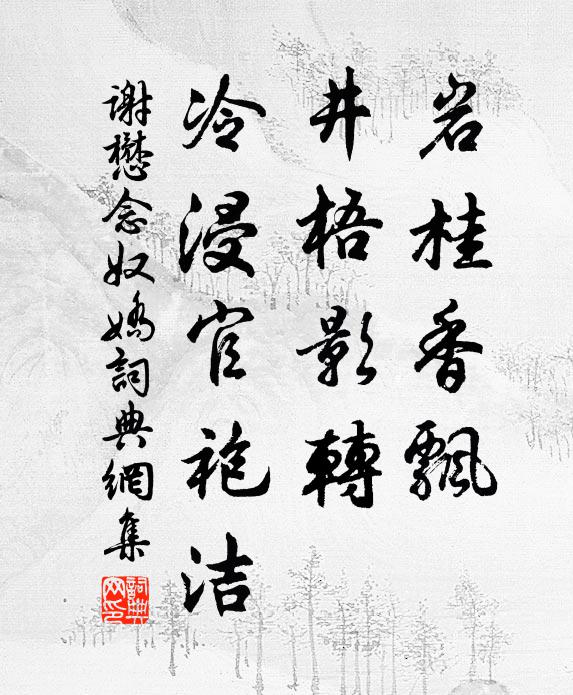 岩桂香飄
井梧影轉
冷浸官袍洁
謝懋念奴嬌詞典網集
詞典網印